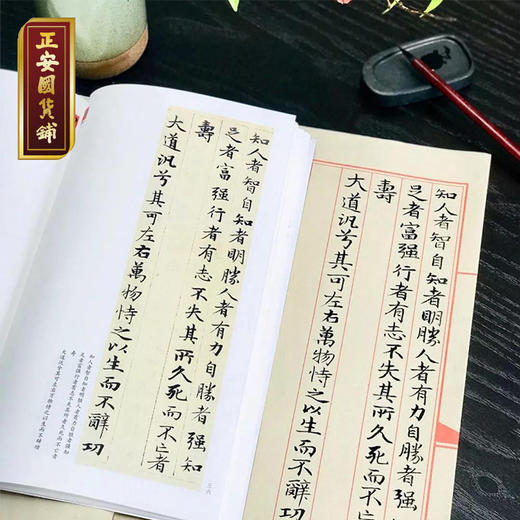 正安國貨鋪
知人者智自知者明勝人者有力自勝者强知
足者富强行者有志不失其所久死而不亡者
壽
大道汎兮其可左右萬物恃之以生而不辭功
知人者智自知者明勝人者有力自勝者强知
足者富强行者有志不失其所久死而不亡者
壽
大道汎兮其可左右萬物恃之以生而不辭功
三六
知人者智自知者明勝人者有力自勝者强
足者富强行者有志不失其所久死而不
壽
大道汎兮其可左右萬物恃之以生而不辭功